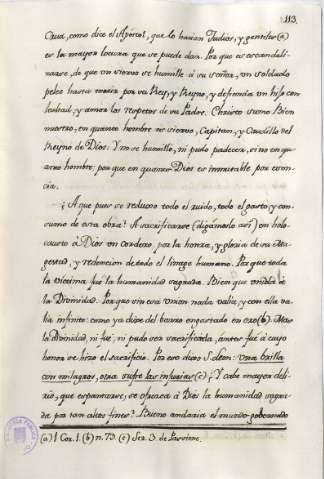 113.
Cruz, como dice el Apostol, que lo hacian Judios, y gentiles (a)
es la mayor locura que se puede dar. Por que es escandeli-
zarse, de que un siervo se humille á su señor, un soldado
pelee hasta morir por su Rey, y Reyno, y defienda un hijo con
lealtad, y amor los respetos de su Padre. Christo sumo Bien
nuestro, en quanto hombre es siervo, Capitan, y Caudillo del
Reyno de Dios: Y no se humilló, ni pudo padecer, si no en qu-
anto hombre; por que en quanto Dios es inmutable por esen-
cia.
¿A que pues se reduxo todo el ruido, todo el gasto, y con-
sumo de esta obra? A sacrificarse (digamoslo asi) en holo-
causto á Dios un cordero por la honra, y gloria de su Ma-
gestad, y redencion de todo el linage humano. Por que toda
la victima fue la humanidad sagrada. Bien que unida á
la Divinidad. Por que sin esa union nada valia, y con ella va-
lia infinito: como ya dixe del barro engastado en oro (b). Mas
la Divinidad, ni fue, ni pudo ser sacrificada, antes fue á cuyo
honor se hizo el sacrificio. Por eso dixo S. Leon: Una brilla
con milagros, otra sufre las injurias (c). Y cabe mayor deli-
rio, que espantarse, se ofrezca á Dios la humanidad sagra-
da por tan altos fines? Bueno andaria el mundo gobernado
(a) 1 Cor. 1. (b) n. 73. (c) Ser. 3. de Passione.